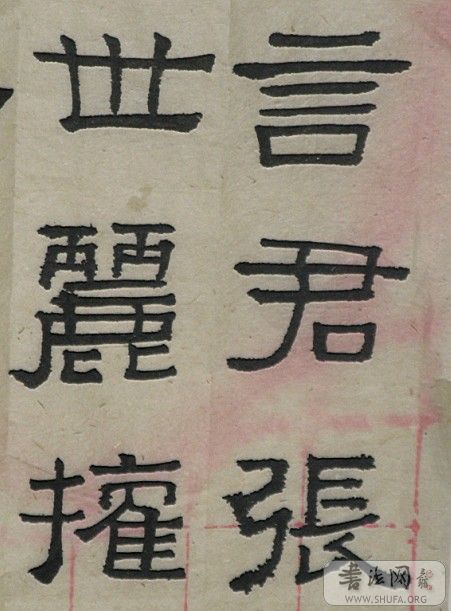 言君張
世麗搉
書法网
WWW.SHUFA.ORG